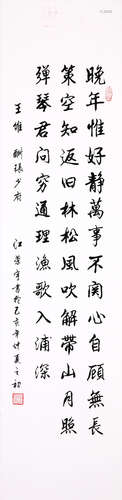 晚年惟好靜萬事不關心自顧無長
策空知返旧林松風吹解帶山月照
彈琴君問窮通理漁歌入浦深
王維 酬張少府
江
書於己亥年仲夏之初